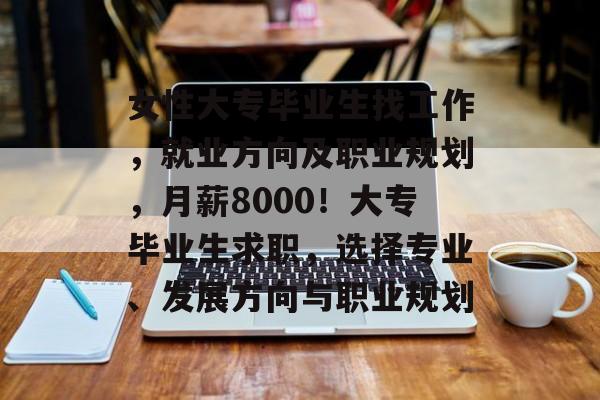 女性大专毕业生找工作
，就业方向及职业规划
，月薪8000！大专
毕业生求职，选择专业
、发展方向与职业规划